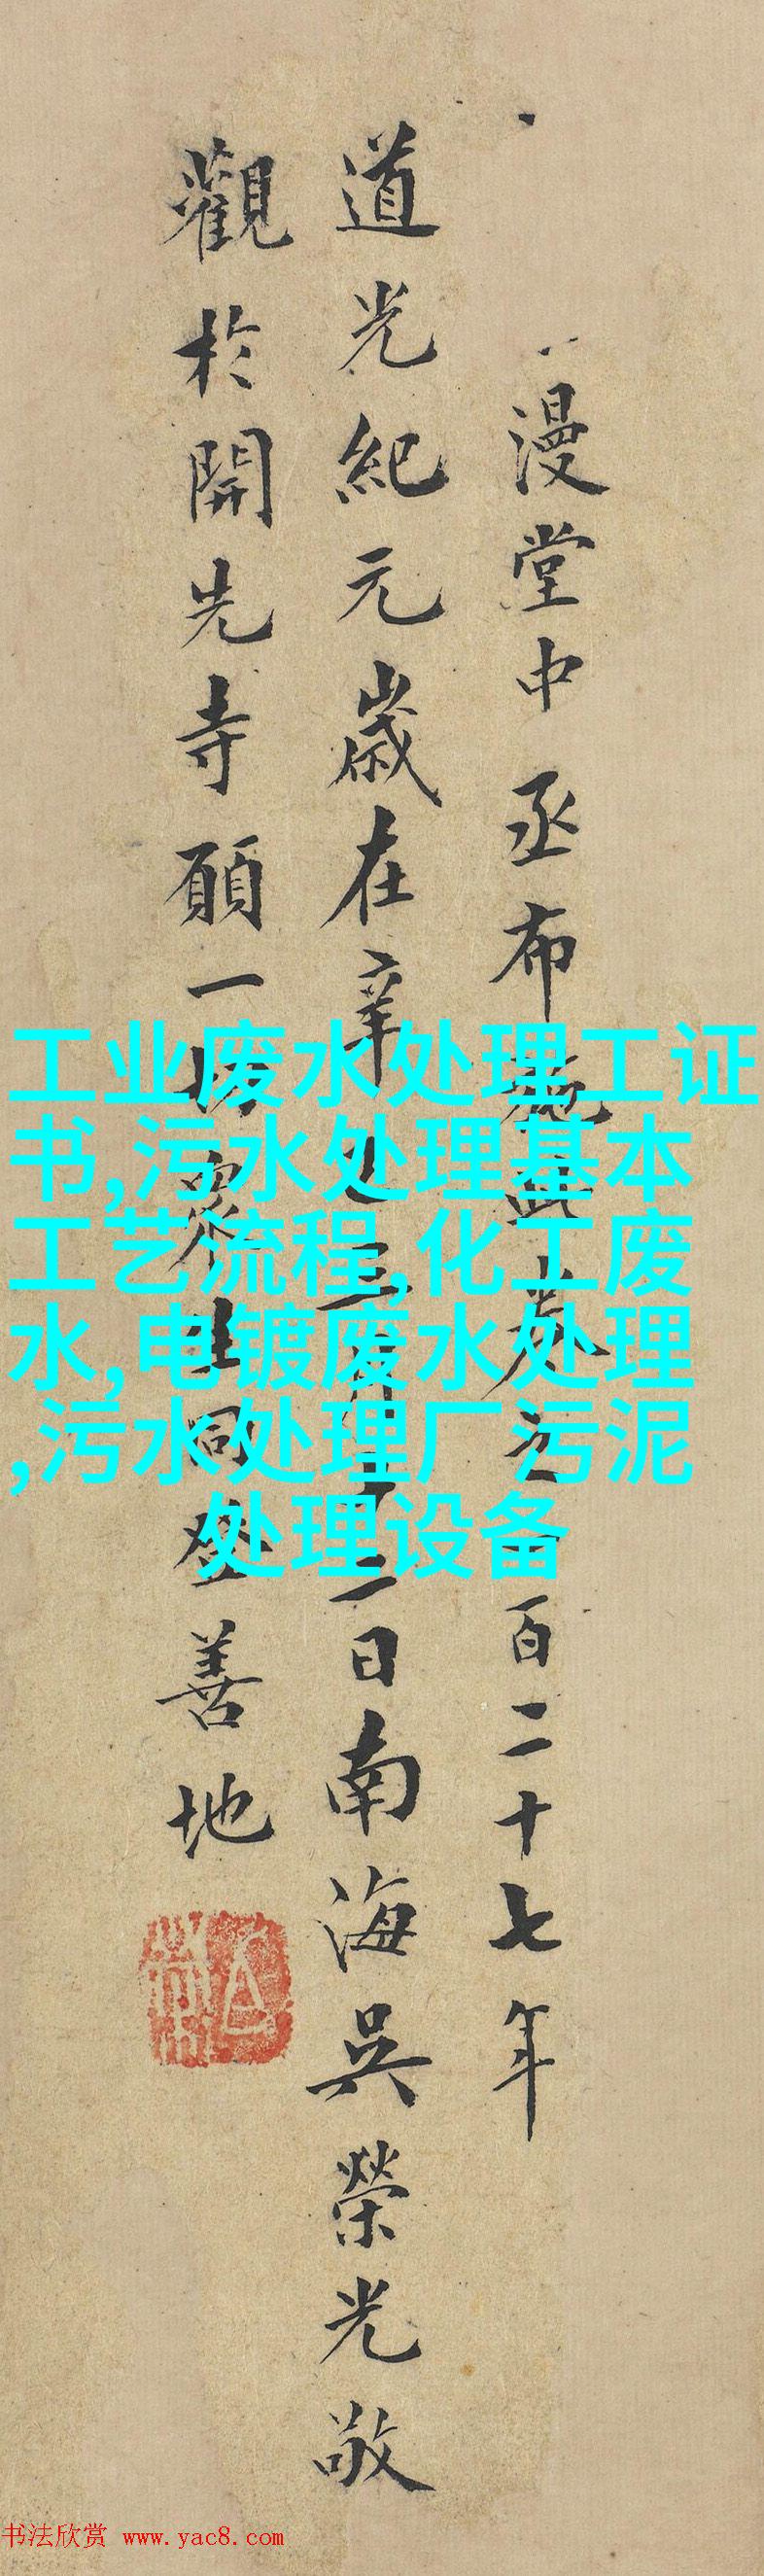 漫堂中丞布施此卷之一百二十七年
道光紀元歲在辛巳三月十二日南海吳榮光敬
觀於開先寺願一切眾生同登善地
工业废水处理工证
书,污水处理基本
工艺流程,化工废
水,电镀废水处理
,污水处理厂污泥
处理设备
书法欣赏 www.yac8.com